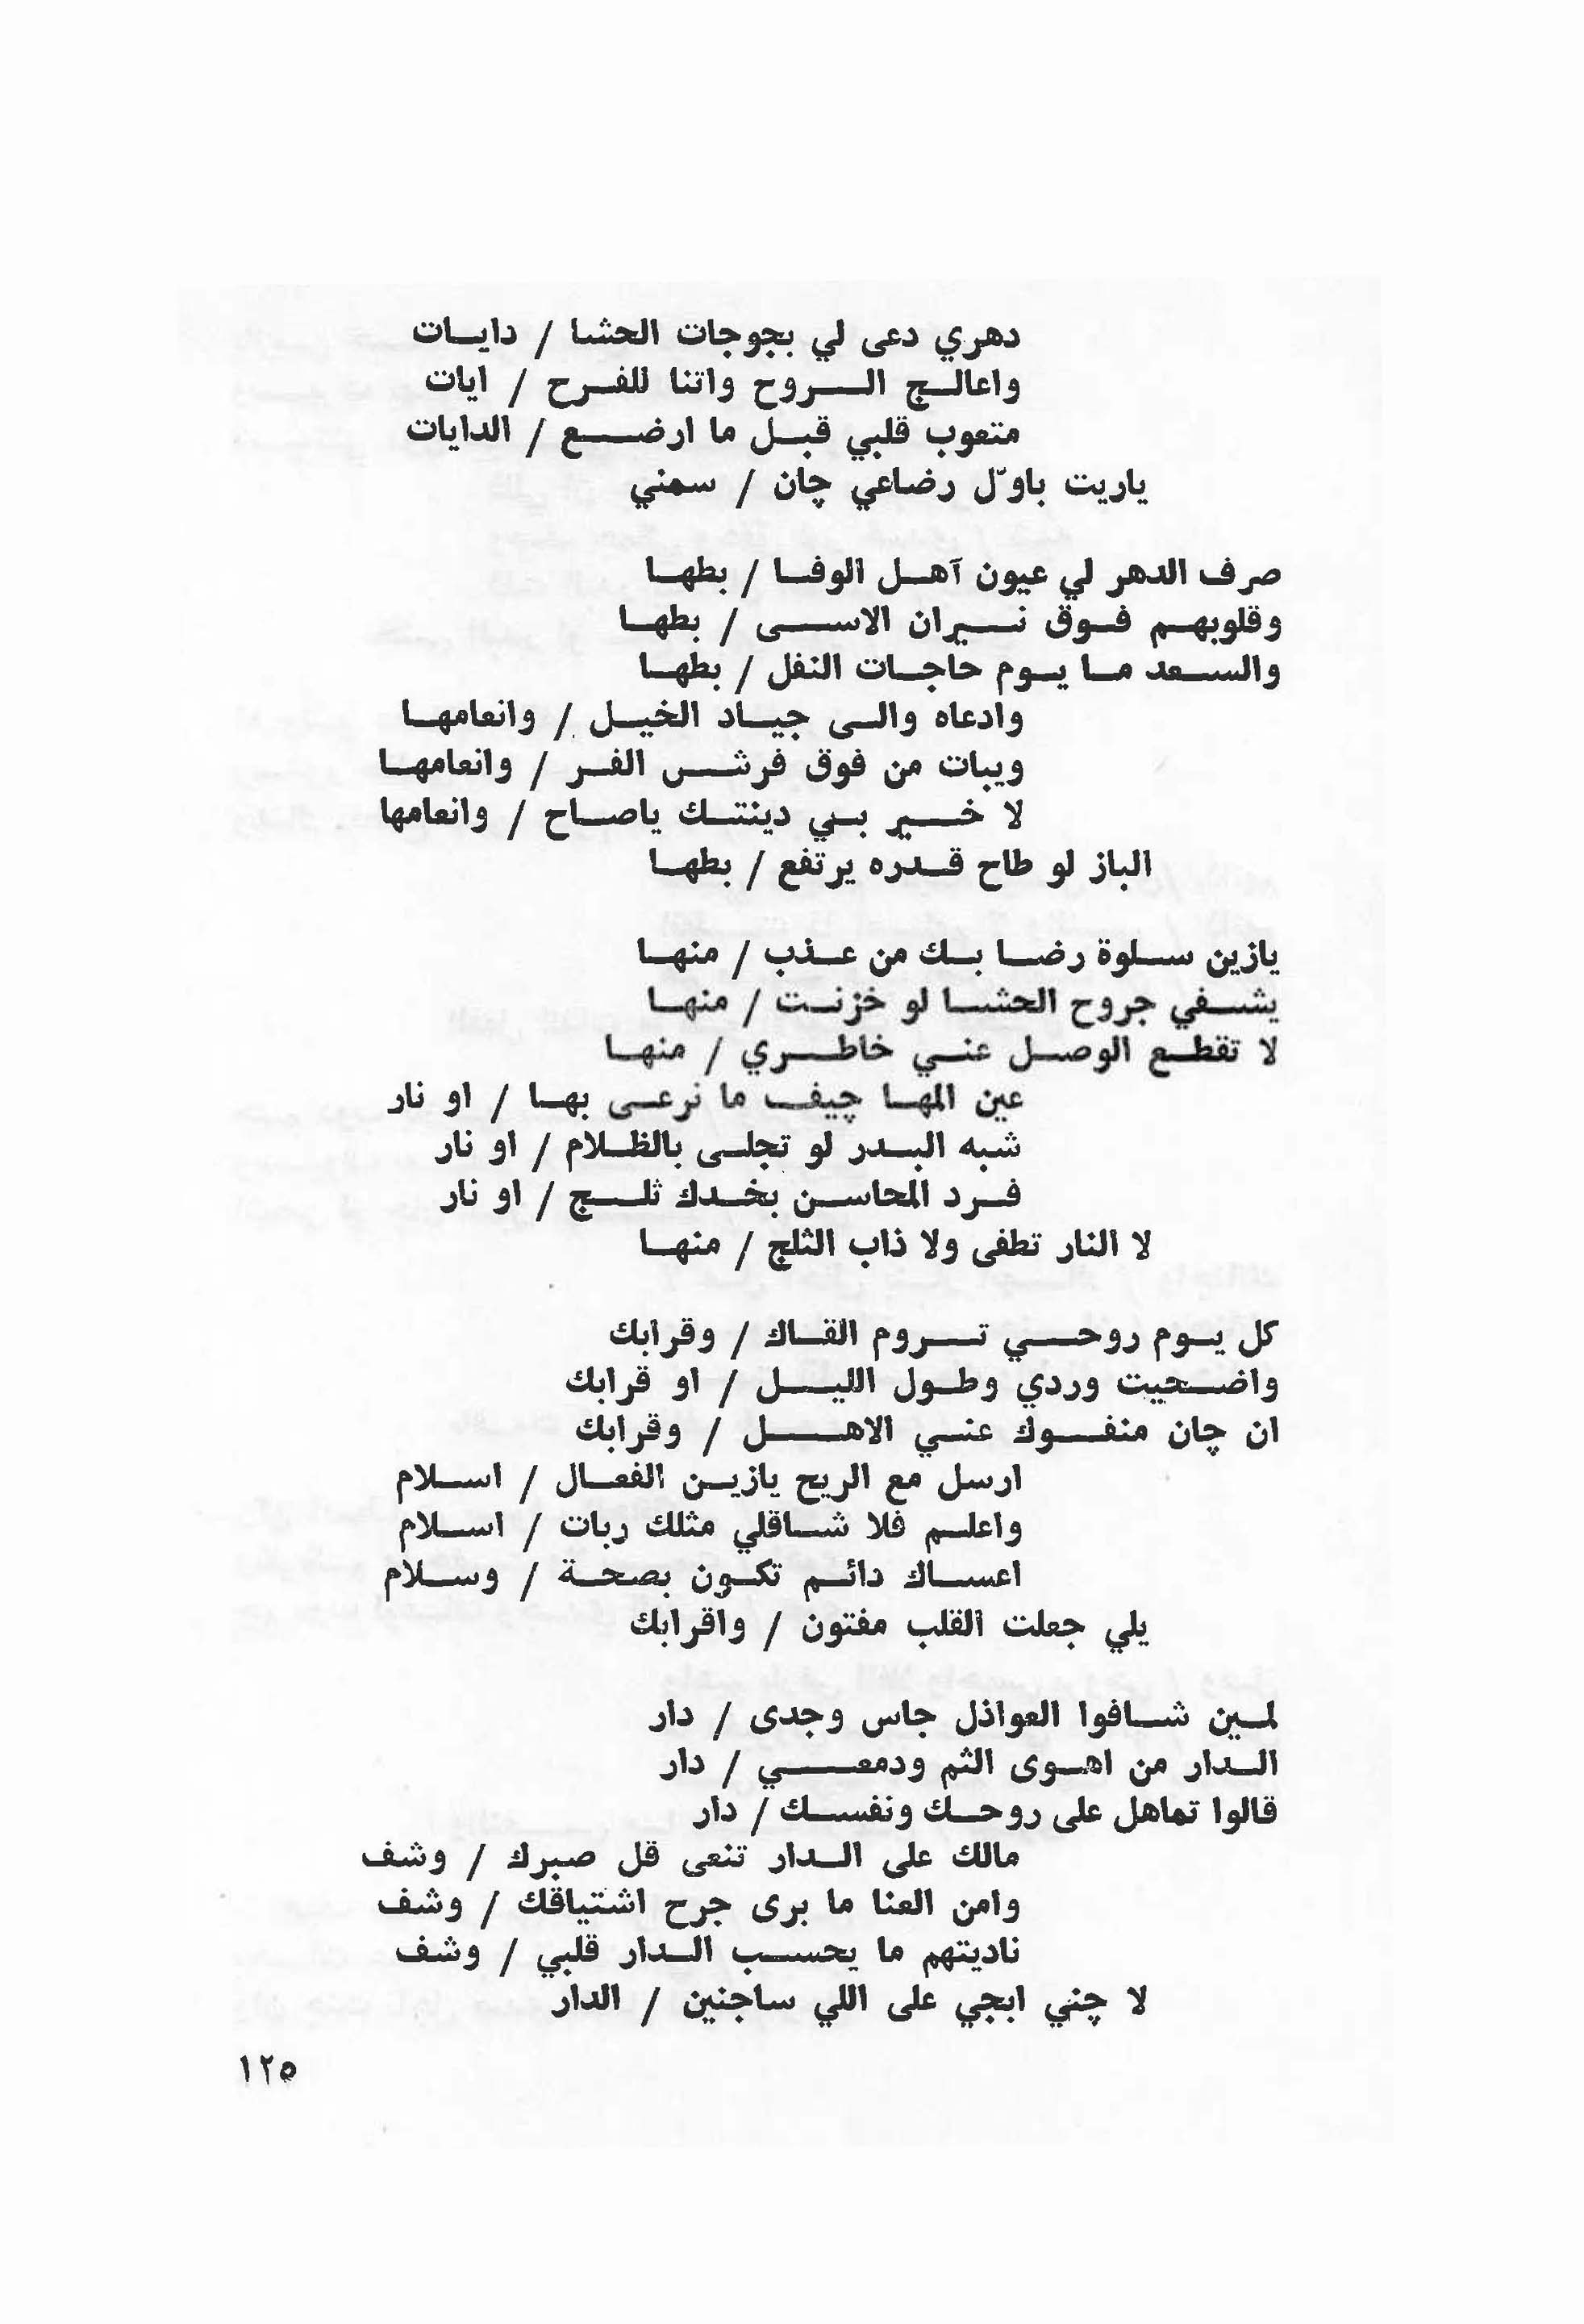 دهري دعى لي بجوجات الحشا / دايات
واعالج الروح واتنا للفرح / ايات
متعوب قلبي قبل ما ارضع / الدايات
ياريت باوّل رضاعي چان / سمني
صرف الدهر لي عيون آهل الوفا / بطها
وقلوبهم فوق نيران الاسى / بطها
والسعد ما يوم حاجات النفل / بطها
وادعاه والى جياد الخيل / وانعامها
ويبات من فوق فرش الفر / وانعامها
لا خير بي دينتك ياصاح / وانعامها
الباز لو طاح قدره يرتفع / بطها
يازين سلوة رضا بك من عذب / منها
يشفي جروح الحشا لو خزنت / منها
لا تقطع الوصل عني خاطري / منها
عين المها چيف ما نرعى بها / او نار
شبه البدر لو تجلى بالظلام / او نار
فرد المحاسن بخدك ثلج / او نار
لا النار تطفى ولا ذاب الثلج / منها
كل يوم روحي تروم القاك / وقرابك
واضحيت وردي وطول الليل / او قرابك
ان چان منفوك عني الاهل / وقرابك
ارسل مع الريح يازين الفعال / اسلام
واعلم فلا شاقلي مثلك ربات / اسلام
اعساك دائم تكون بصحة / وسلام
يلي جعلت القلب مفتون / واقرابك
لمين شافوا العواذل جاس وجدى / دار
الدار من اهوى الثم ودمعي / دار
قالوا تماهل على روحك ونفسك / دار
مالك على الدار تنعى قل صبرك / وشف
وامن العنا ما برى جرح اشتياقك / وشف
ناديتهم ما يحسب الدار قلبي / وشف
لا چني ابجي على اللي ساجنين / الدار
١٢٥